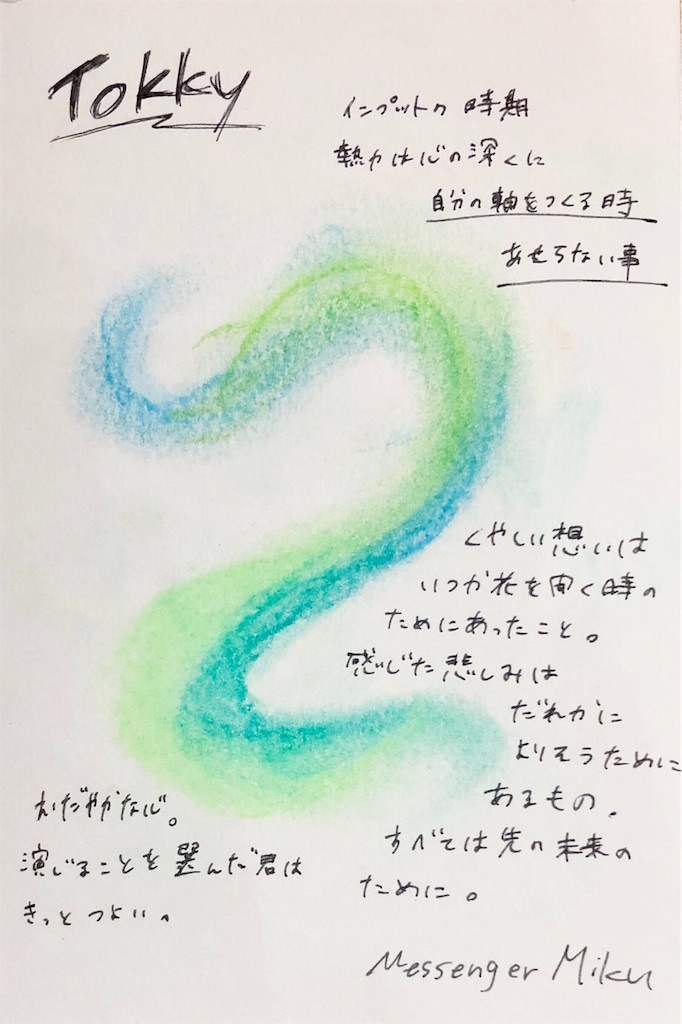 Tokky
インプットの時期
熱カは心の深くに
自分の軸をつくる時
あせらない事
くやしい想いは
いつか花を開く時の
ためにあったこと。
感じた悲しみは
だれかに
よりそうために
あるもの.
すべては先の未来の
ために。
おだやかな心。
演じることを選んだ君は
きっとつよい。
Messenger Miku